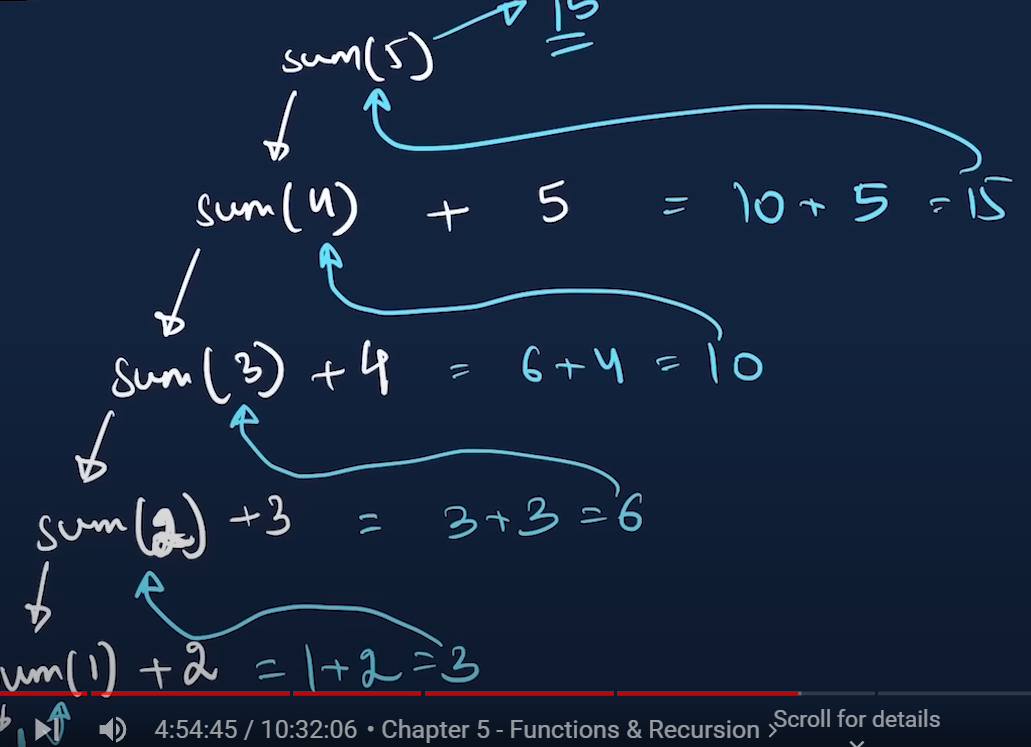 15
sum(5)
sum(4) + 5 = 10 + 5 = 15
sum(3) + 4 = 6 + 4 = 10
sum(2) + 3 = 3 + 3 = 6
um(1) + 2 = 1 + 2 = 3
4:54:45 / 10:32:06 • Chapter 5 - Functions & Recursion >
Scroll for details